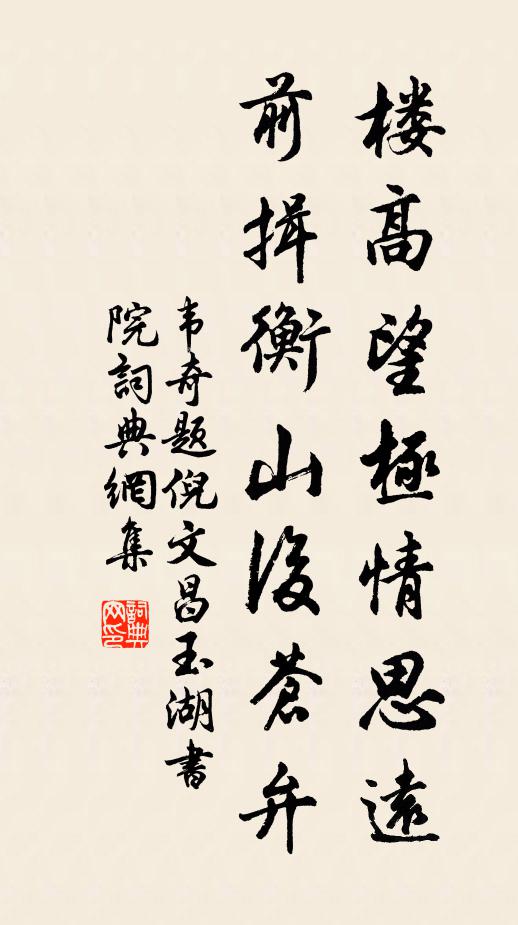 楼高望極情思遠
前揖衡山後蒼弁
韦奇题倪文昌玉湖書
院詞典網集
詞典
网印